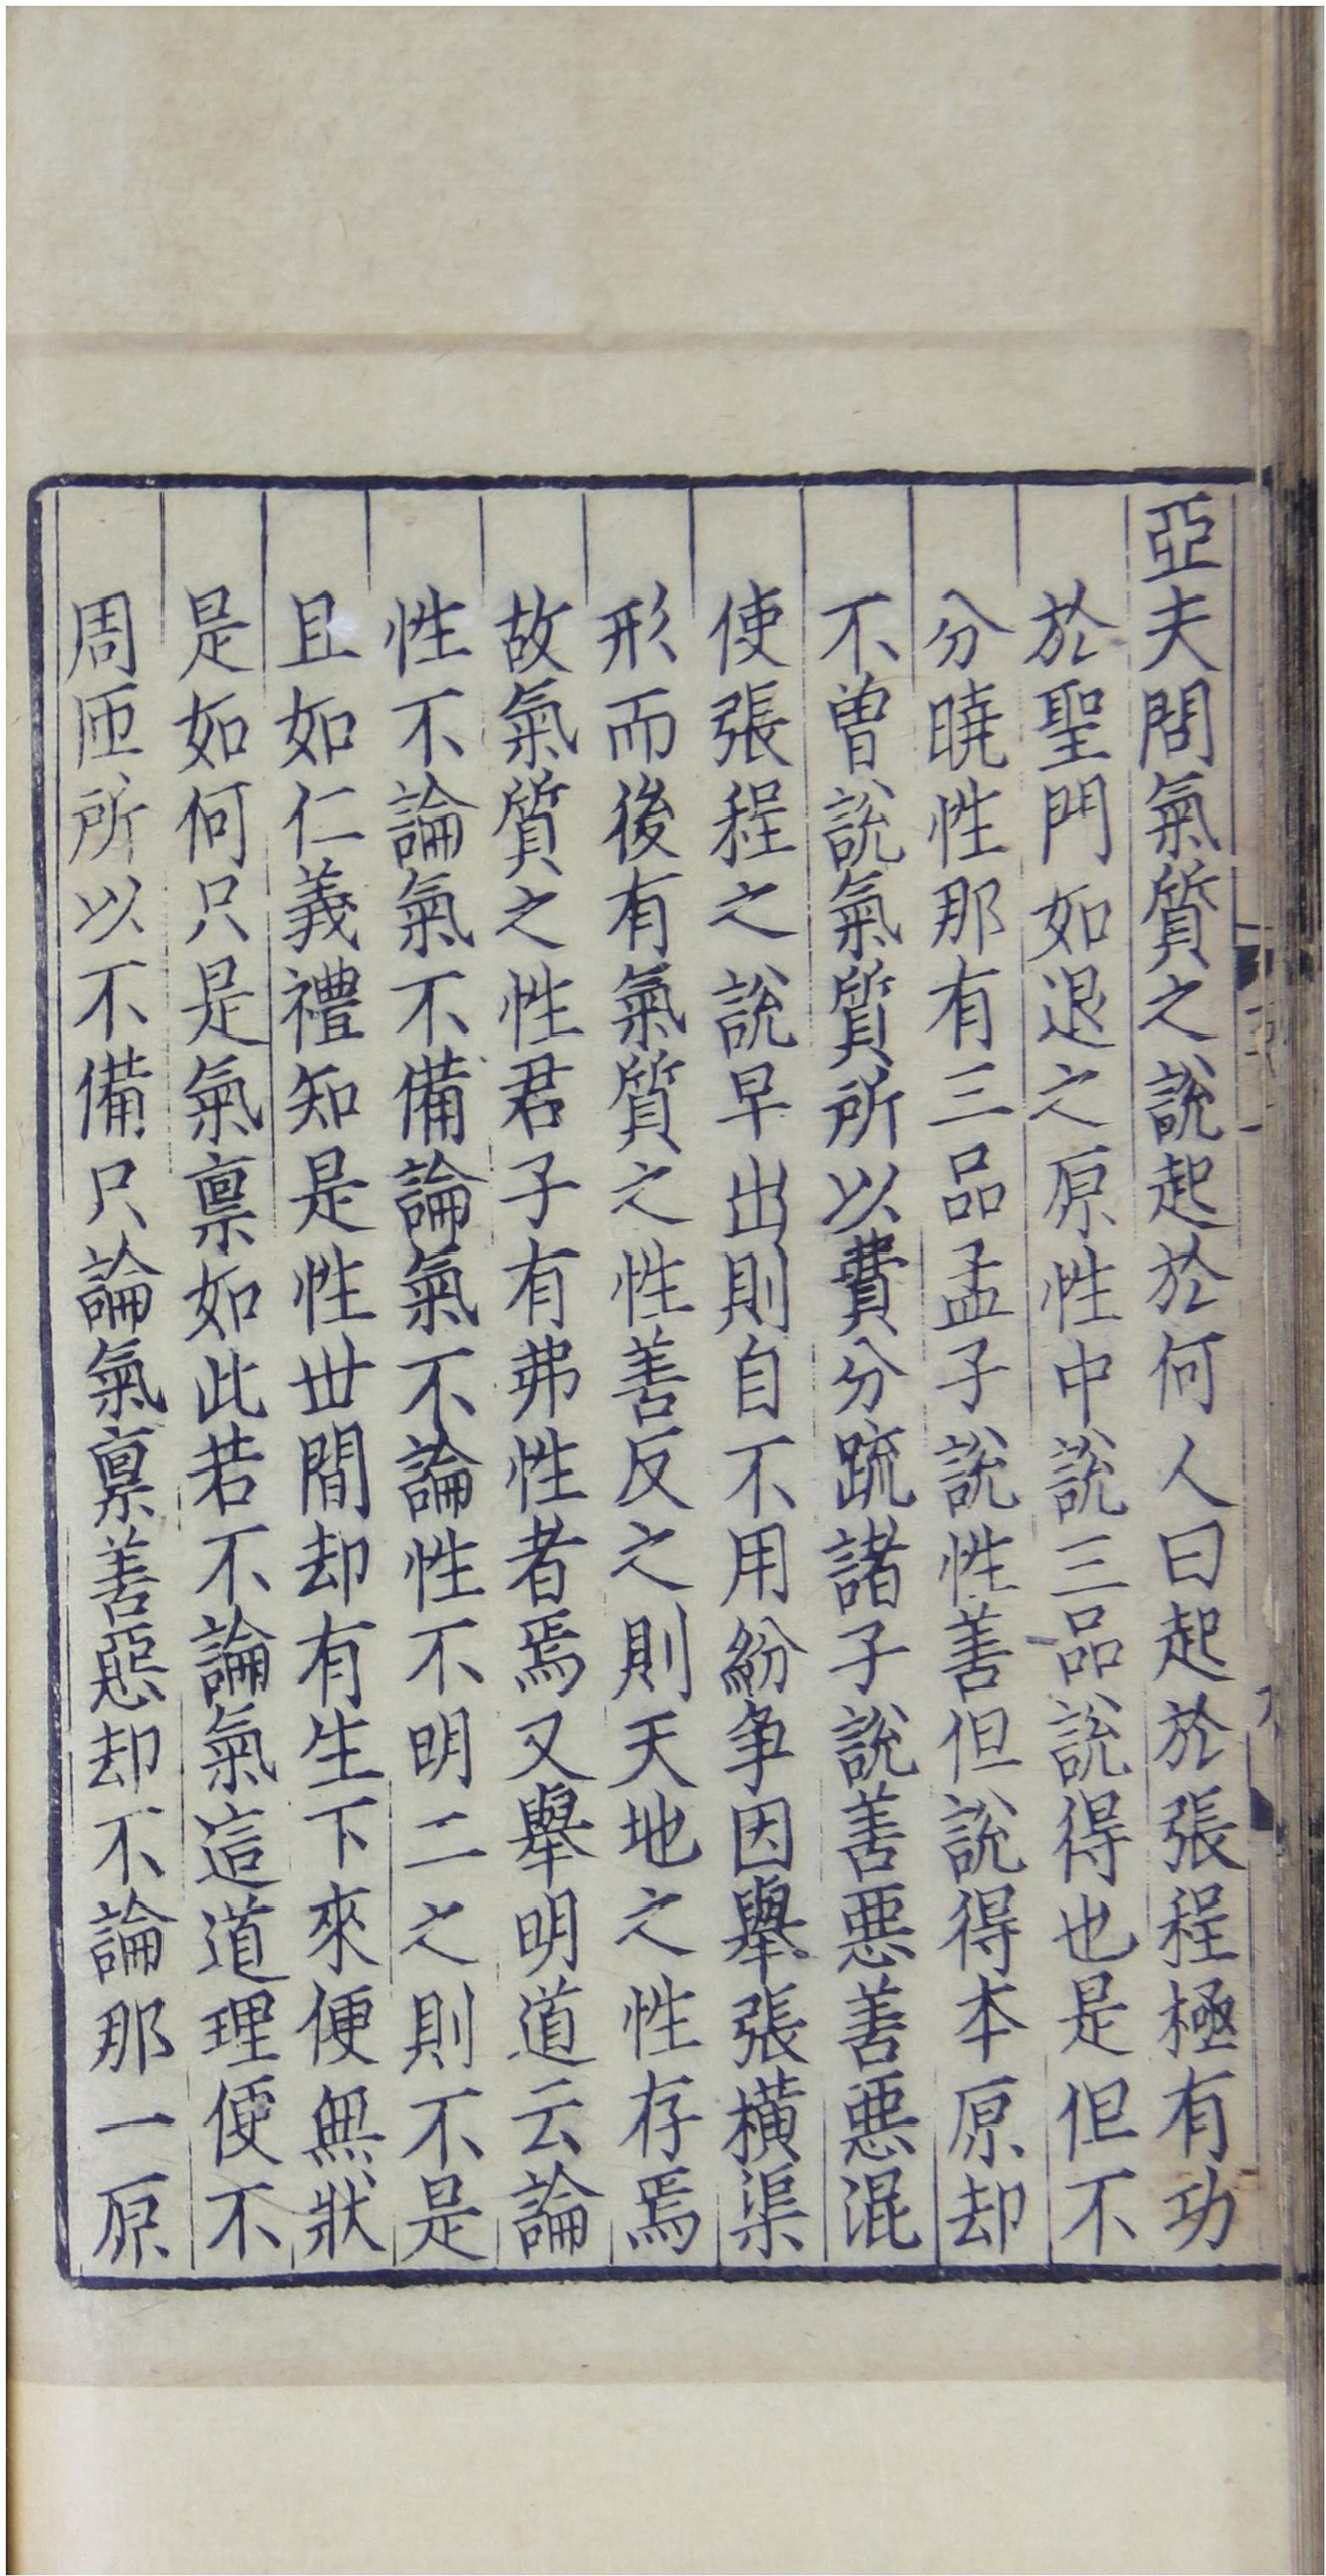 亞夫問氣質之說起於何人曰起於張程極有功
於聖門如退之原性中說三品說得也是但不
分曉性那有三品孟子說性善但說得本原却
不曾說氣質所以費分疏諸子說善惡善惡混
使張程之說早出則自不用紛爭因舉張橫渠
形而後有氣質之性善反之則天地之性存焉
故氣質之性君子有弗性者焉又舉明道云論
性不論氣不備論氣不論性不明二之則不是
且如仁義禮知是性世間却有生下來便無狀
是如何只是氣稟如此若不論氣這道理便不
周匝所以不備只論氣稟善惡却不論那一原